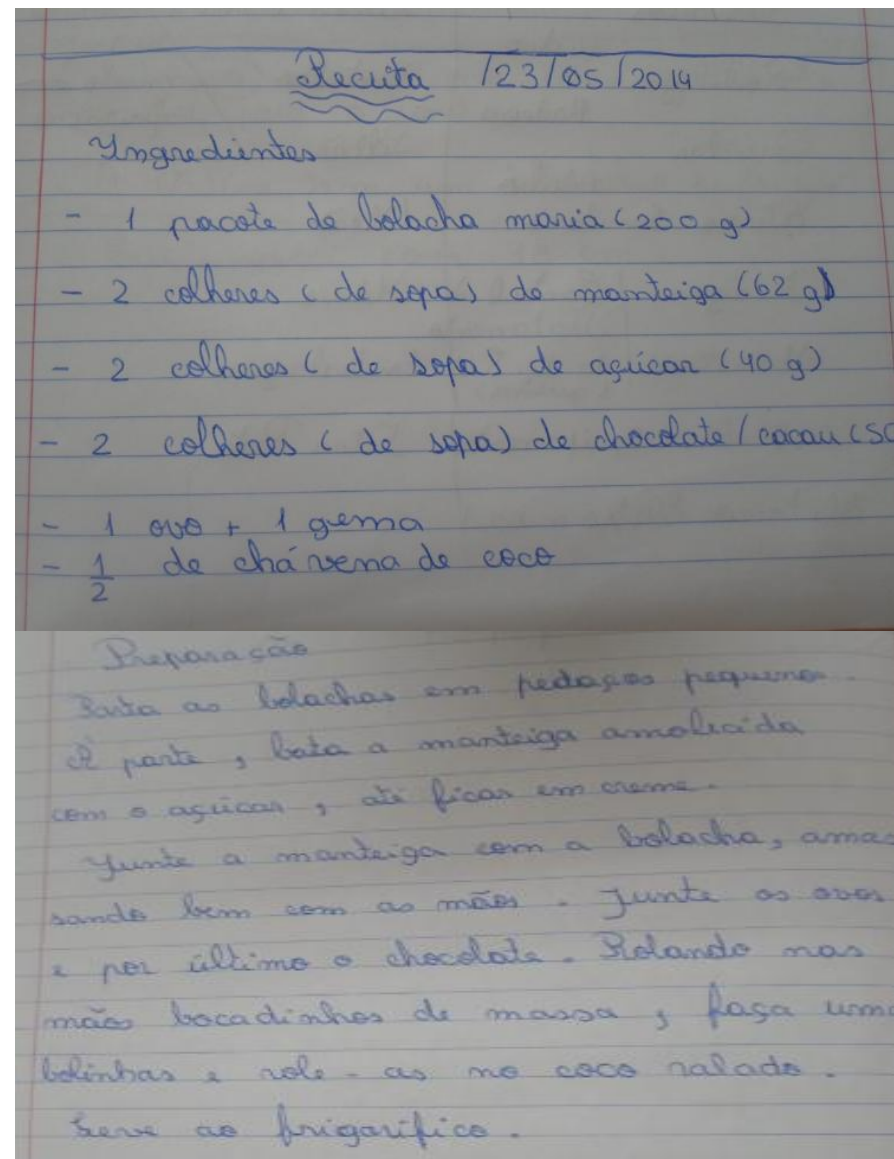 Receita /23/05/2014
Ingredientes
- 1 pacote de bolacha maria (200 g)
- 2 colheres (de sopa) de manteiga (62 g)
- 2 colheres (de sopa) de açúcar (40 g)
- 2 colheres (de sopa) de chocolate / cacau (50
- 1 ovo + 1 gema
- 1/2 de chávena de coco
Preparação
as bolachas em pedaços pequenos.
À parte, bata a manteiga amolecida
com o açúcar, até ficar em creme.
Junte a manteiga com a bolacha, amas
sando bem com as mãos. Junte os ovos
e por último o chocolate. Rolando nas
mãos bocadinhos de massa, faça uma
bolinhas e role-as no coco ralado.
Leve ao frigarífico.